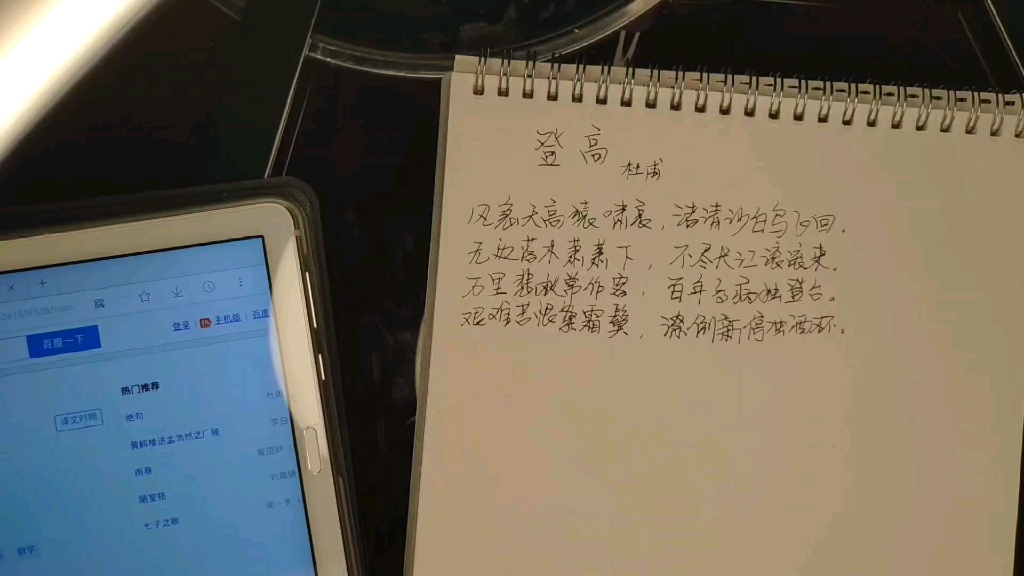 登高
杜甫
风急天高猿啸哀，渚清沙白鸟飞回.
无边落木萧萧下，不尽长江滚滚来.
万里悲秋常作客，百年多病独登台。
艰难苦恨繁霜鬓，潦倒新停浊酒杯。
登录 手机版 百度
百度一下
热门推荐
译文对照
绝句
黄鹤楼送孟浩然之广陵
李白
雨巷
戴望舒
陋室铭
刘禹锡
七子之歌
闻一多
数字